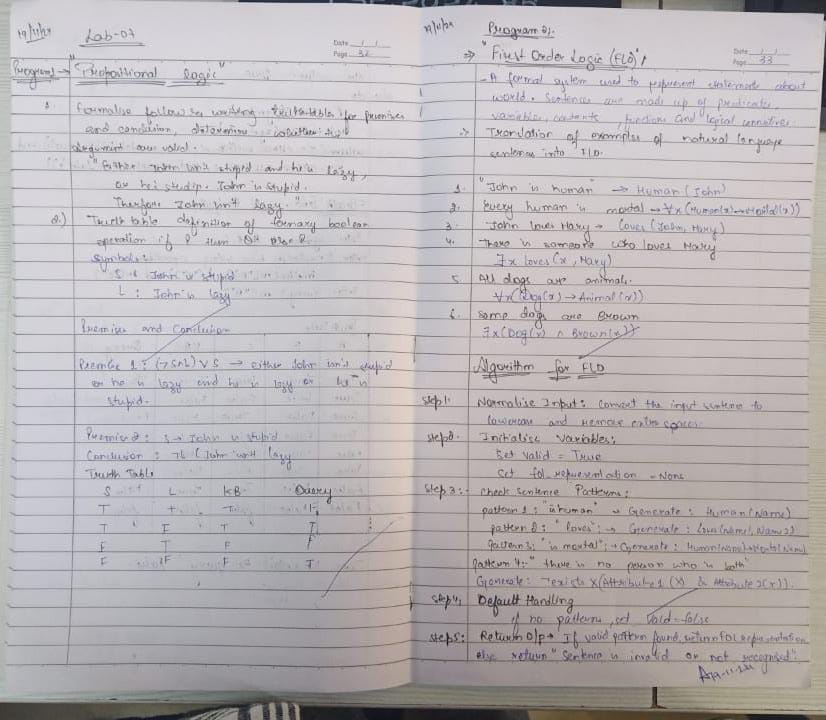 19/11/24
Lab-07
Date / /
Page 32
Program1 → "Propositional logic"
1. formalise follow writing truthtables for premises
and conclusion, determine whether
argument are valid.
"Either John isn't stupid and he is lazy,
or he's stupid. John is stupid.
Therefore John isn't lazy."
2.) Truth table definition of boolean
operation if P then
symbols:
S : John is stupid
L : John is lazy
Premises and Conclusion
Premise 1 : (¬S∧L) V S → either John isn't stupid
or he is lazy and he is lazy or he is
stupid.
Premise 2 : S → John is stupid
Conclusion : ¬L (John isn't lazy
Truth Table
S L KB Query
T T T F
T F T T
F T F F
F F F T
19/11/24
Program 2).
Date / /
Page 33
⇒ "First Order Logic (FLO)"
- A formal system used to represent statements about
world. Sentences are made up of predicates,
variables, constants, functions and logical connectives.
:> Translation of examples of natural language
sentences into FLO.
1. "John is human" → Human (John)
2. Every human is mortal → ∀x(Human(x)→Mortal(x))
3. John loves Mary → Loves (John, Mary)
4. There is someone who loves Mary
∃x loves (x, Mary)
5. All dogs are animals.
∀x(Dog(x) → Animal(x))
6. some dogs are Brown
∃x(Dog(x) ∧ Brown(x))
Algorithm for FLO
Step1. Normalise Input: Convert the input sentence to
lowercase and remove extra spaces.
step2. Initialise Variables:
Set Valid = True
Set fol_representation = None
Step 3:- Check Sentence Patterns:
pattern 1 : "is human" → Generate : Human (Name)
pattern 2 : "loves" ; → Generate : Love(Name1, Name2)
pattern 3 : "is mortal" ; → Generate : Human(Name)→Mortal(Name)
pattern 4 : "there is no person who is both"
Generate : ¬exists X(Attribute1 (X) & Attribute2(X)).
Step4: Default Handling
if no patterns, set Valid = false
step5: Return O/p → If valid pattern found, return FOL representation
else return "Sentence is invalid or not recognised".